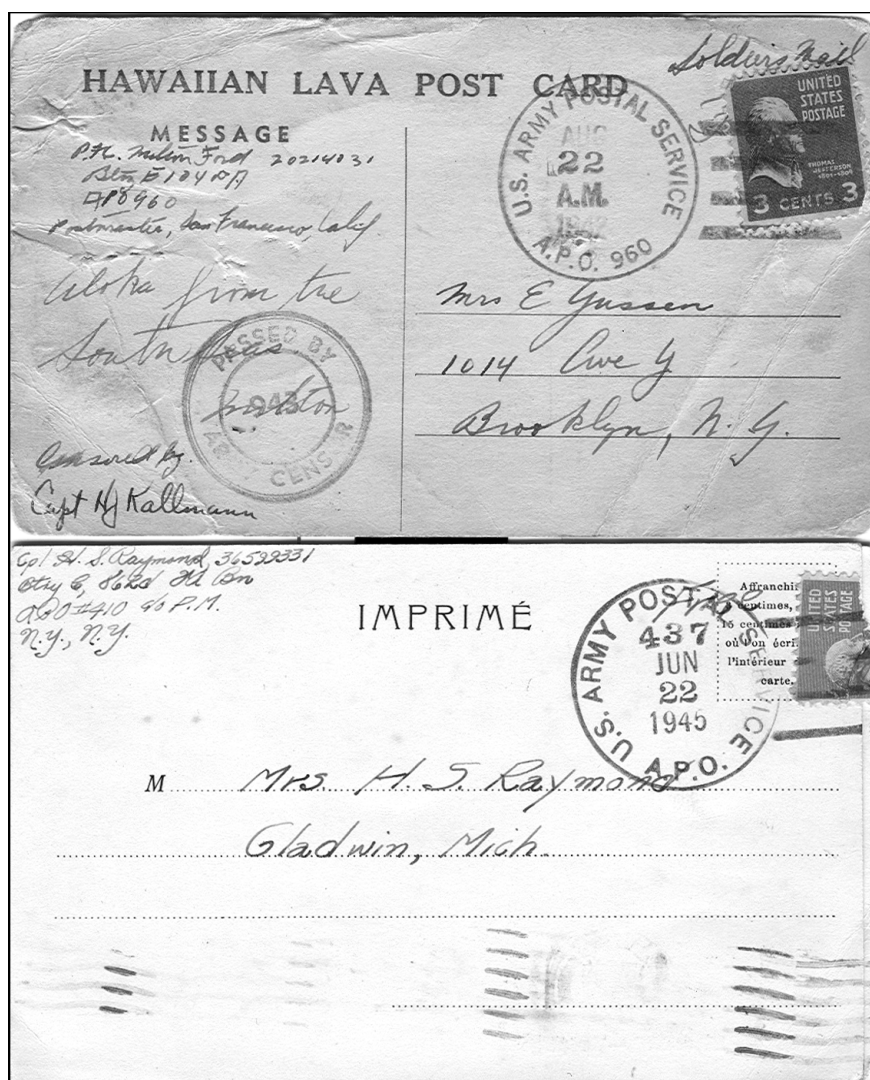 Soldiers Mail
HAWAIIAN LAVA POST CARD
MESSAGE
Pfc. Milton Ford 20214031
Btry E 104
APO 960
Postmaster, San Francisco, Calif.
Aloha from the
South Seas
Milton
PASSED BY
943
ARMY CENSOR
Censored by
Capt HJ Kallmann
U.S. ARMY POSTAL SERVICE
AUG
22
A.M.
1942
A.P.O. 960
UNITED
STATES
POSTAGE
THOMAS
JEFFERSON
1801-1809
3 CENTS 3
Mrs E Gussen
1014 Ave Y
Brooklyn, N.Y.
Cpl H. S. Raymond, 36599331
Btry C, 862d FA Bn
APO #410 c/o P.M.
N.Y., N.Y.
IMPRIMÉ
U.S. ARMY POSTAL SERVICE
437
JUN
22
1945
A.P.O.
Affranchi
centimes,
15 centimes
où l'on écri
l'intérieur
carte.
UNITED
STATES
POSTAGE
M Mrs. H. S. Raymond
Gladwin, Mich.